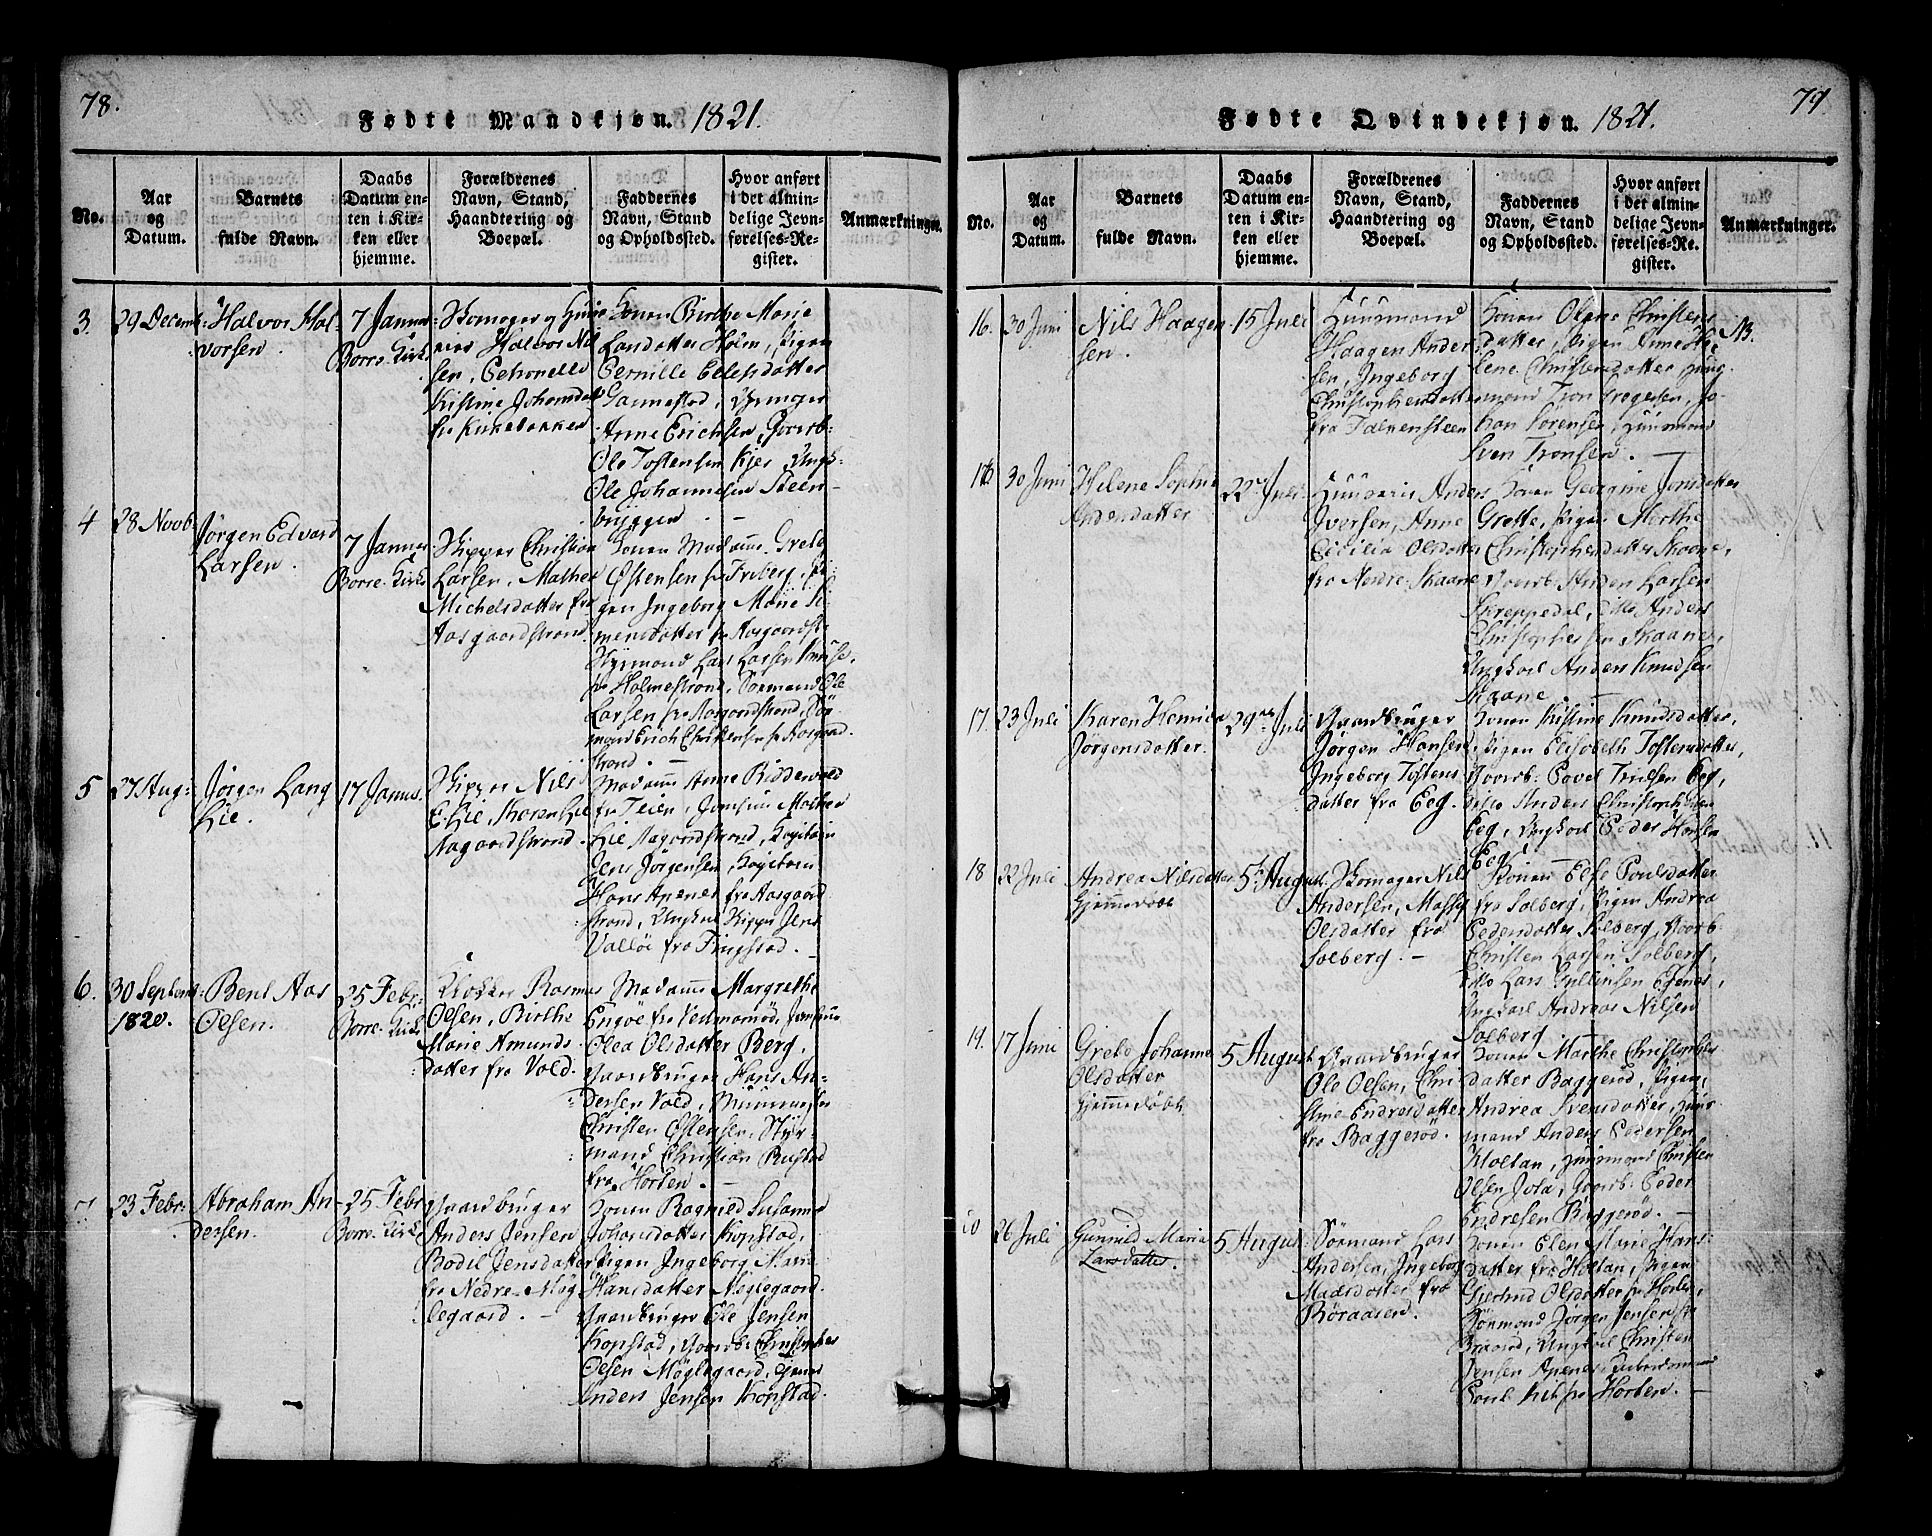 78.
Fødte Mandkjøn. 1821.
No.
Aar
og
Datum.
Barnets
fulde Navn.
Daabs
Datum en-
ten i Kir-
ken eller
hjemme.
Forældrenes
Navn, Stand,
Haandtering og
Boepæl.
Faddernes
Navn, Stand
og Opholdssted.
Hvor anført
i det almin-
delige Jevn-
førelses-Re-
gister.
Anmærkninger.
3.
29 Decemb:
Halvor Hal-
vorsen.
7 Januar
Borre Kirk
Halvor Nil
sen, Petronelle
Kistine Johansdatt
fra Kirkebakken
Konen Birthe Marie
Larsdatter Holm, Pigen
Pernille Ellefsdatter
Gannestad,
Anne Erichsen, Gaardb-
Ole Tostensen Kjær, Ungk-
Ole Johannesen Steen-
bryggen —
4
28 Novb:
Jørgen Edvard
Larsen.
7 Januar
Borre Kirk
Skipper Christian
Larsen, Mathea
Michelsdatter fra
Aasgaardstrand
Konen Madame Grethe
Østensen fra Friberg, Pi
gen Ingeborg Marie Si
mensdatter fra Aasgaardst:
Styrmand Lars Larsen
fra Holmestrand, Sørmand Ole
Larsen fra Aasgaardstrand, Søe
mand Erich Christensen fra Aasgaard
strand. —
5
27 Aug:
Jørgen Lang
Lie.
17 Januar.
Skipper Nils
E. Lie, Maren Lie
Aasgaardstrand.
Madame Anne Ridderwold
fra Teien, Jomfrue Mathea
Lie Aasgaardstrand, Kapitain
Jens Jørgensen, Kapitain
Hans Apenes fra Aasgaard
strand, Ungkarl Skipper Jens
Valløe fra Tingstad. —
6.
30 Septemb:
1820.
Bent Aas
Olsen.
25 Febr:
Borre Kirk
Klokker Rasmus
Olsen, Birthe
Marie Amunds
datter fra Vold.
Madame Margrethe
Engøe fra Vedmarød, Jomfrue
Olea Olsdatter Berg,
Gaardbruger Hans An-
dersen Vold,
Christen Østensen, Styr-
mand Christian Rustad
fra Horten. —
7
23 Febr:
Abraham An-
dersen.
25 Febr
Borre Kirk
Gaardbruger
Anders Jensen
Bodil Jensdatter
fra Nedre Møg
legaard. —
Konen Ragnild Susanne
Johansdatter Kopstad,
Pigen Ingeborg Marie
Hansdatter Møglegaard.
Gaardbruger Ole Jensen
Kopstad, Gaardb: Christopher
Olsen Møglegaard,
Anders Jensen Kopstad.
79
Fødte Qvindekjøn. 1821.
No.
Aar
og
Datum.
Barnets
fulde Navn.
Daabs
Datum en-
ten i Kir-
ken eller
hjemme.
Forældrenes
Navn, Stand,
Haandtering og
Boepæl.
Faddernes
Navn, Stand
og Opholdssted.
Hvor anført
i det almin-
delige Jevn-
førelses-Re-
gister.
Anmærkninger.
16.
30 Juni
Nils Haagen
sen.
15 Juli
Huusmand
Haagen Ander
sen, Ingeborg
Christophersdatter
fra Falkensteen
Konen Olene Christens
datter, Pigen Anne He
lene Christensdatter, Huus
mand Tron Gregersen, Jo-
han Sørensen, Huusmand
Sven Tronsen. —
NB.
16
30 Juni
Helene Sophie
Andersdatter
22de Juli
Anders
Iversen, Anne
Cicilia Olsdatter
fra Nordre Skaane
Konen Georgine Jonsdatter
Grette, Pigen Marthe
Christophersdatter Skaane,
Gaardb: Anders Larsen
Skreppedal, ditto Anders
Christophersen Skaane,
Ungkarl Anders Knudsen
Skaane. —
17.
23 Juli
Karen Henrica
Jørgensdatter.
29de Juli
Gaardbruger
Jørgen Hansen
Ingeborg Tostens
datter fra Eeg.
Konen Kistine Knudsdatter,
Pigen Elisabeth Tostensdatter,
Gaardb: Povel Truelsen Eeg,
ditto Anders Christophersen
Eeg, Ungkarl Peder Hansen
Eeg. —
18
22 Juli
Andrea Nilsdatter
Hjemmedøbt
5te August.
Skomager Nils
Andersen, Massy
Olsdatter fra
Solberg. —
Konen Else Poulsdatter
fra Solberg, Pigen Andrea
Pedersdatter Solberg, Gaardb-
Christen Larsen Solberg,
ditto Lars Gullinsen Egenes,
Ungkarl Andreas Nilsen
Solberg —
19.
17 Juni
Grete Johanne
Olsdatter
Hjemmedøbt
5 August
Gaardbruger
Ole Olsen, Chri
stine Endresdatter
fra Baggerød.
Konen Marthe Christophers
datter Baggerød, Pigen
Andrea Svensdatter, Huus
mand Anders Pedersen
Holtan, Huusmand Christen
Olsen Jola, Gaardb: Peder
Endresen Baggerød. —
20
26 Juli
Gunnild Maria
Larsdatter.
5 August:
Sørmand Lars
Andersen, Ingeborg
Madsdatter fra
Røraasen.
Konen Elen Marie Hans
datter fra Holtan, Pigen
Gjertrud Olsdatter fra Horten,
Sørmand Jørgen Jensen fra
Braard, Ungkarl Christen
Jensen Apenes,
fra Horten. —